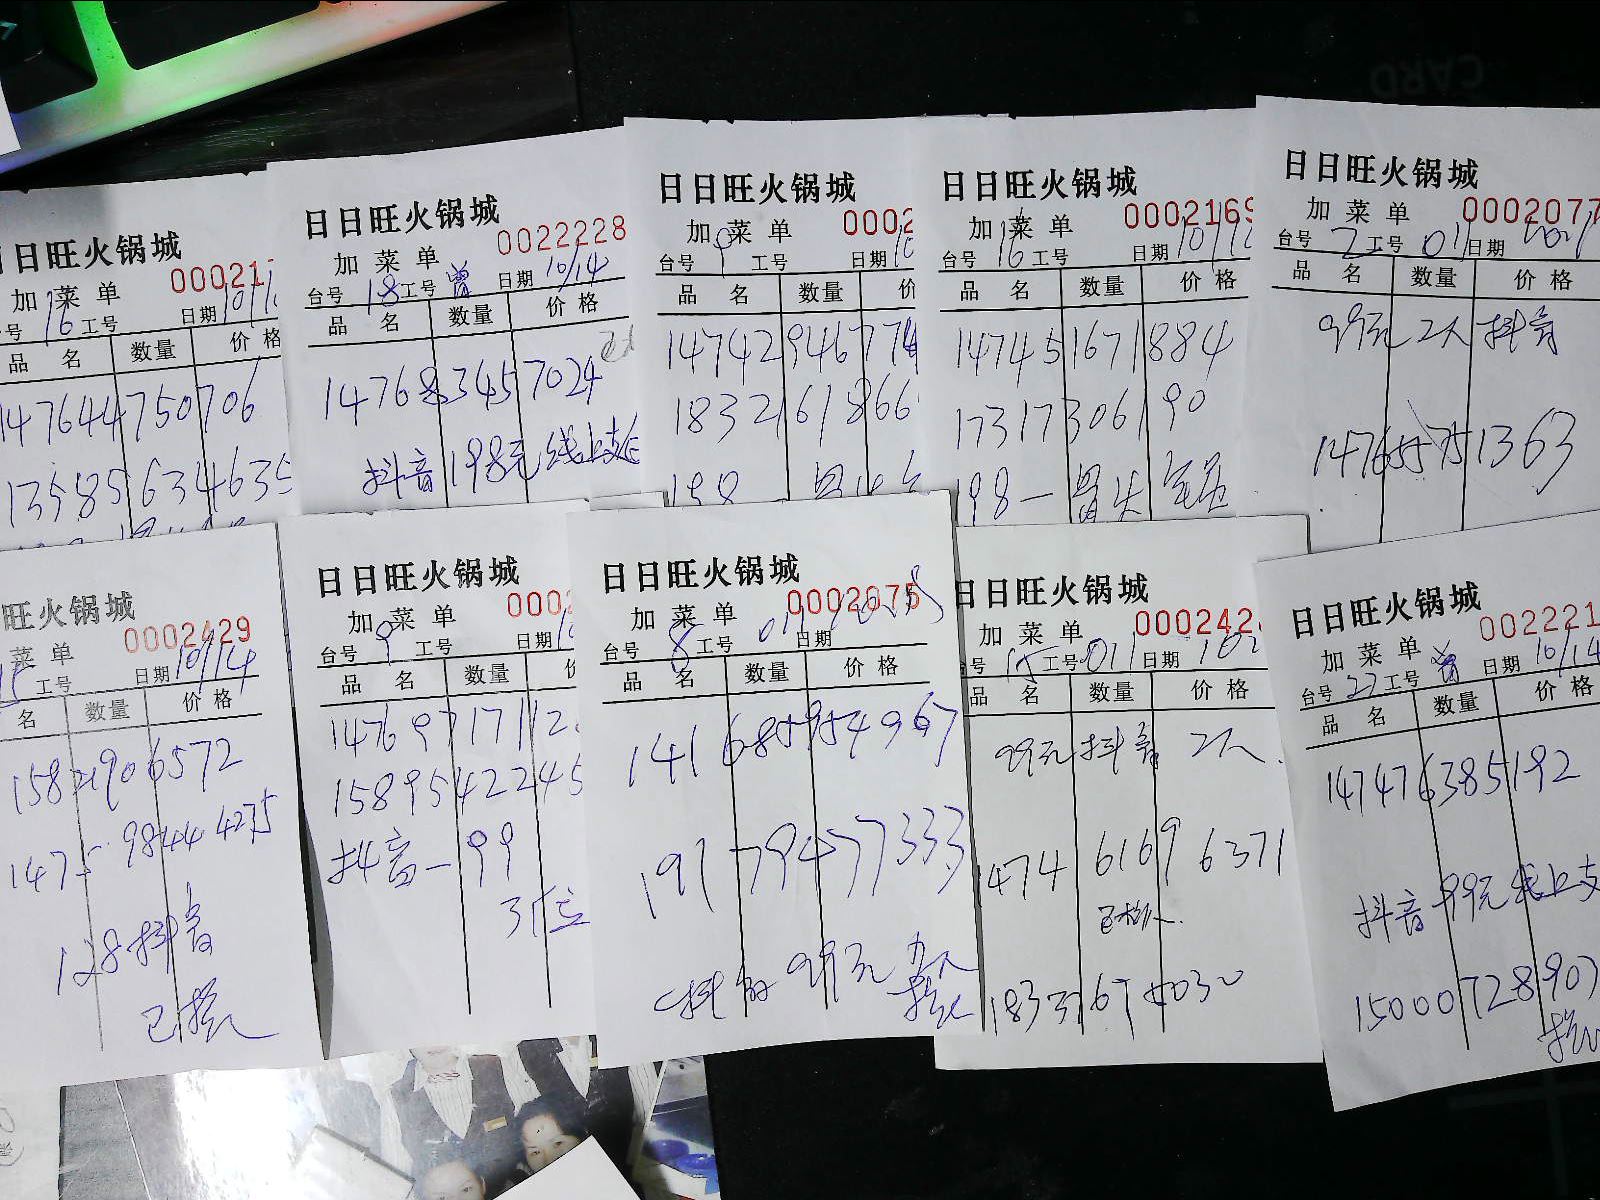 日日旺火锅城
加菜单
号 16 工号 日期 10/1
品 名 数量 价格
147644750706
13585634635
日日旺火锅城
0022228
加菜单
台号 18 工号 曾 日期 10/14
品 名 数量 价格
147683457024
抖音 198元 线上支
日日旺火锅城
0002
加菜单
台号 9 工号 日期 10
品 名 数量 价
14742946774
183261866
日日旺火锅城
000216
加菜单
台号 16 工号 日期 10/1
品 名 数量 价格
147451671884
17317306190
198一
日日旺火锅城
0002077
加菜单
台号 2 工号 011 日期
品 名 数量 价格
99元 2人 抖音
147655751363
旺火锅城
0002429
菜单
15 工号 日期 10/14
名 数量 价格
158219066572
98444275
128抖音
已接
日日旺火锅城
000
加菜单
台号 9 工号 日期 1
品 名 数量
147697171120
1589542245
抖音一99
3位
日日旺火锅城
0002075
加菜单
台号 8 工号 011 日期
品 名 数量 价格
141685954967
191794577333
99元
日日旺火锅城
000242
加菜单
号 15 工号 011 日期 102
品 名 数量 价格
99元 抖音 2人
147461696371
18331674030
日日旺火锅城
002221
加菜单
台号 22 工号 曾 日期 10/14
品 名 数量 价格
147476385192
抖音 99元 线上支
15000728907
CARD